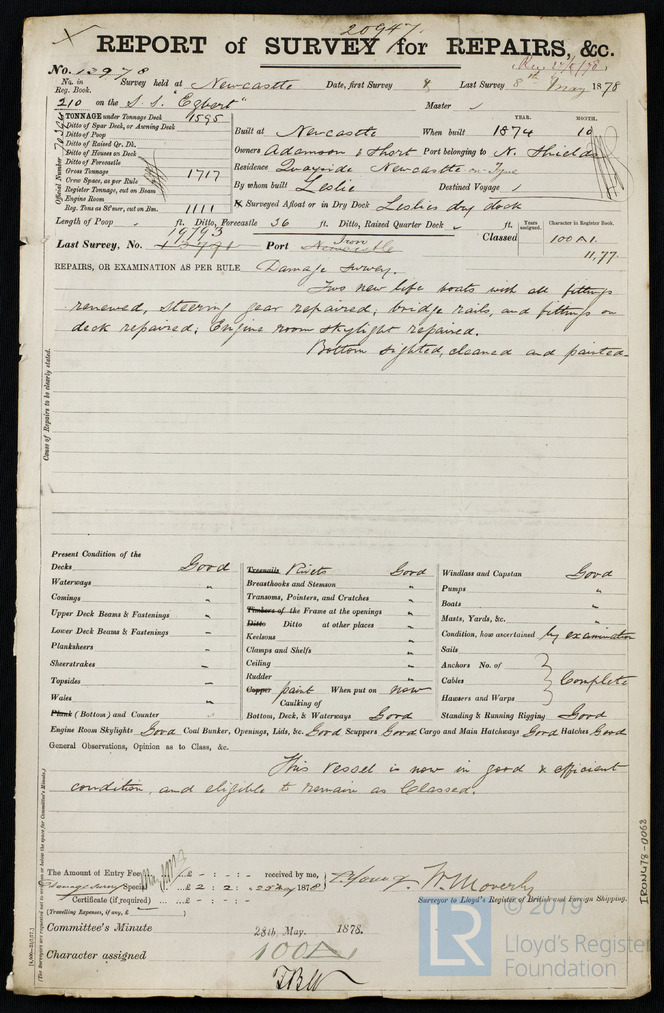 20947.
REPORT of SURVEY for REPAIRS, &c.
No. 13978
No. in Reg. Book. Survey held at Newcastle Date, first Survey 8 Last Survey 8th May 1878
210 on the S.S. "Egbert" Master
TONNAGE under Tonnage Deck 1595
Ditto of Spar Deck, or Awning Deck
Ditto of Poop
Ditto of Raised Qr. Dk.
Ditto of Houses on Deck
Ditto of Forecastle
Gross Tonnage 1717
Crew Space, as per Rule
Register Tonnage, cut on Beam
Engine Room
Reg. Tons as St'mer, cut on Bm. 1111
Official Number
YEAR. MONTH.
Built at Newcastle When built 1874 10
Owners Adamson & Short Port belonging to N. Shields
Residence Quayside Newcastle on Tyne
By whom built Leslie Destined Voyage
Surveyed Afloat or in Dry Dock Leslies dry dock
Length of Poop ft. Ditto, Forecastle 36 ft. Ditto, Raised Quarter Deck ft.
Years assigned. Character in Register Book.
Classed 100A1.
11,77.
19793
Last Survey, No. Port Newcastle
Iron
REPAIRS, OR EXAMINATION AS PER RULE Damage Survey.
Two new life boats with all fittings
renewed, steering gear repaired; bridge rails, and fittings on
deck repaired; Engine room skylight repaired.
Bottom sighted, cleaned and painted
Cause of Repairs to be clearly stated.
Present Condition of the
Decks Good
Waterways "
Comings "
Upper Deck Beams & Fastenings "
Lower Deck Beams & Fastenings "
Planksheers "
Sheerstrakes "
Topsides "
Wales "
Plank (Bottom) and Counter "
Treenails Rivets Good
Breasthooks and Stemson "
Transoms, Pointers, and Crutches "
Timbers of the Frame at the openings "
Ditto Ditto at other places "
Keelsons "
Clamps and Shelfs "
Ceiling "
Rudder "
Copper paint When put on now
Caulking of
Bottom, Deck, & Waterways Good
Windlass and Capstan Good
Pumps "
Boats "
Masts, Yards, &c. "
Condition, how ascertained by examination
Sails
Anchors No. of
Cables Complete
Hawsers and Warps
Standing & Running Rigging Good
Engine Room Skylights Good Coal Bunker, Openings, Lids, &c. Good Scuppers Good Cargo and Main Hatchways Good Hatches Good
General Observations, Opinion as to Class, &c.
This vessel is now in good & efficient
condition, and eligible to remain as Classed.
The Amount of Entry Fee £ - : - : - received by me,
Damage Survey Special £ 2 : 2 : - 25 May 1878
Certificate (if required) ... £ - : - : -
(Travelling Expenses, if any, £ )
W. Moverly
Surveyor to Lloyd's Register of British and Foreign Shipping.
Committee's Minute 28th May. 1878.
Character assigned 100A1
IRON478-0062
© 2019
LR
Lloyd's Register
Foundation